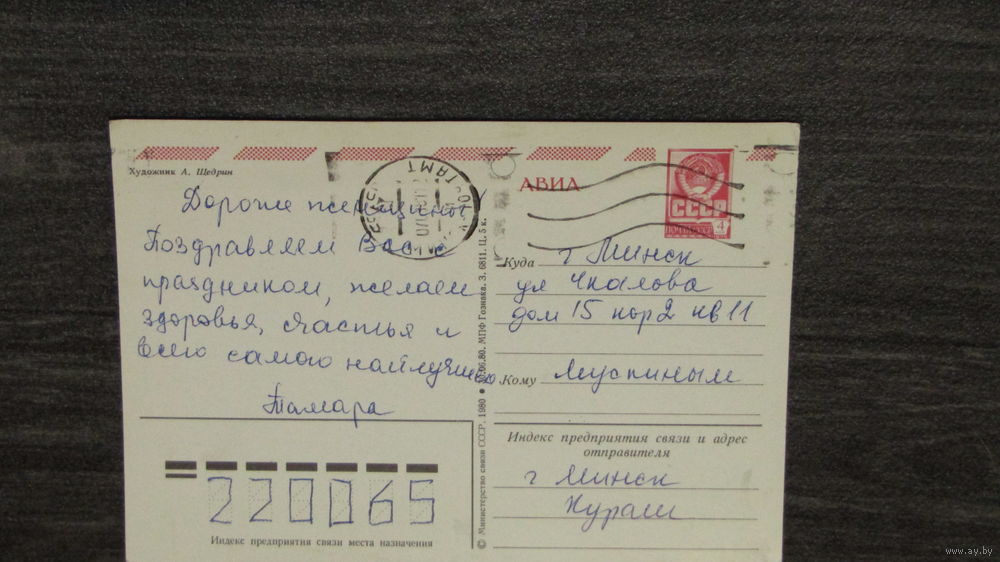 Художник А. Щедрин
АВИА
СССР
ПОЧТА СССР
4
Дорогие женщины
Поздравляем Вас с
праздником, желаем
здоровья, счастья и
всего самого наилучшего
Тамара
220065
Индекс предприятия связи места назначения
© Министерство связи СССР, 1980 • .06.80. МПФ Гознака. З. 6811. Ц. 5 к.
Куда г Минск
ул Чкалова
дом 15 кор 2 кв 11
Кому Муспиным
Индекс предприятия связи и адрес
отправителя
г Минск
Кураш
www.ay.by